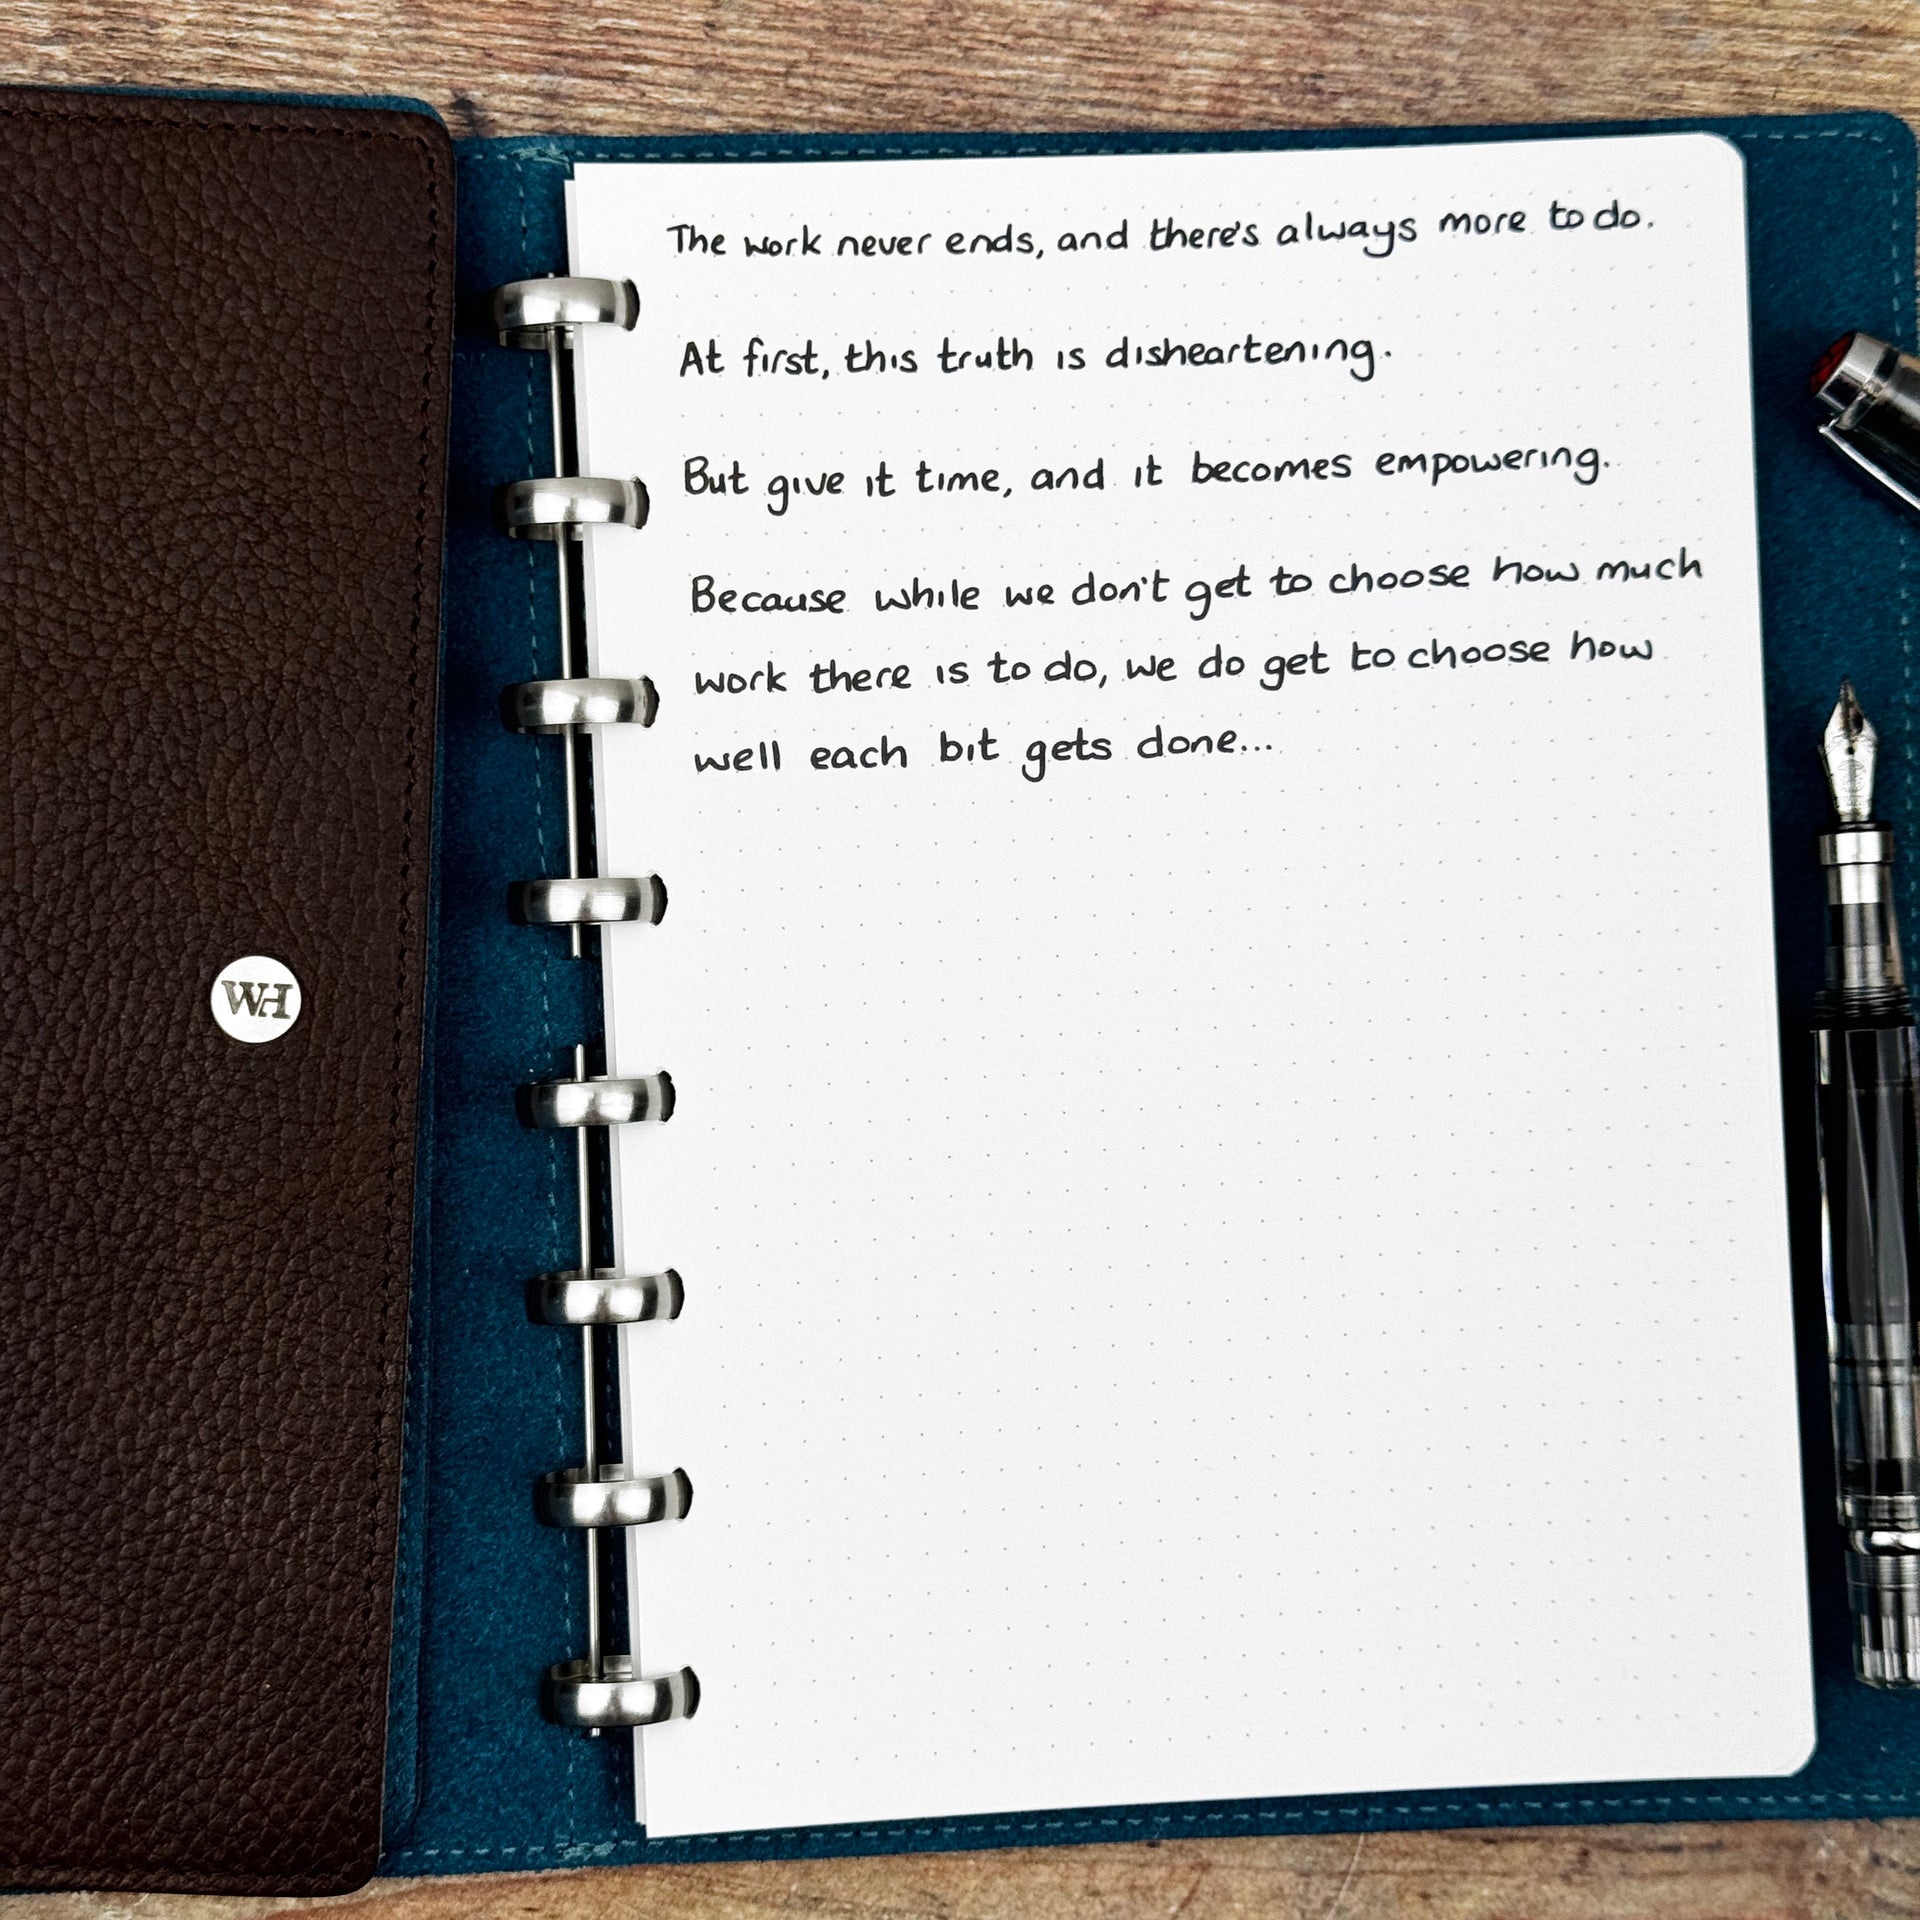 The work never ends, and there's always more to do.
At first, this truth is disheartening.
But give it time, and it becomes empowering.
Because while we don't get to choose how much
work there is to do, we do get to choose how
well each bit gets done...
WH